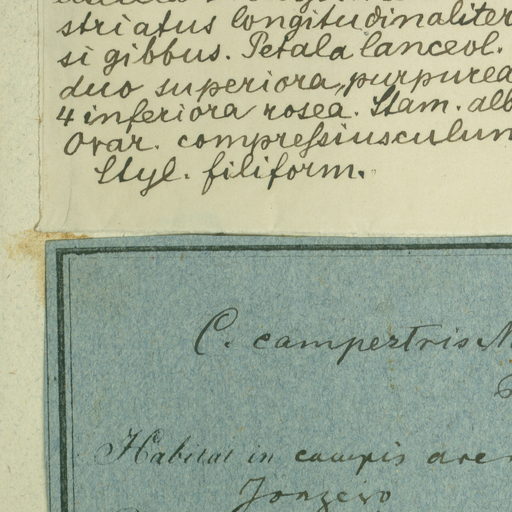 striatus longitudinaliter
si gibbus. Petala lanceol.
duo superiora, purpurea
4 inferiora rosea. Stam. alb
Ovar. compressiusculum
Styl. filiform.
C. campestris N
Habitat in campis are